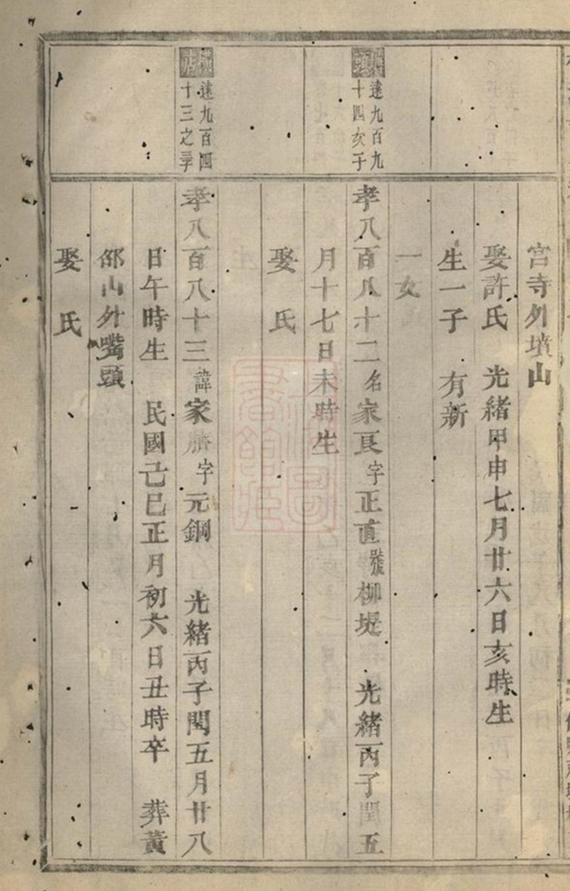 宫寺外墳山
娶許氏 光緒甲申七月廿六日亥時生
生一子 有新
一女
達九百九
十四亥子
孝八百八十二名家良字正直號柳堤 光緒丙子閏五
月十七日未時生
娶 氏
達九百四
十三之子
孝八百八十三諱家 字元鋼 光緒丙子閏五月廿八
日午時生 民國己巳正月初六日丑時卒 葬黃
邵山外嘴頭
娶 氏